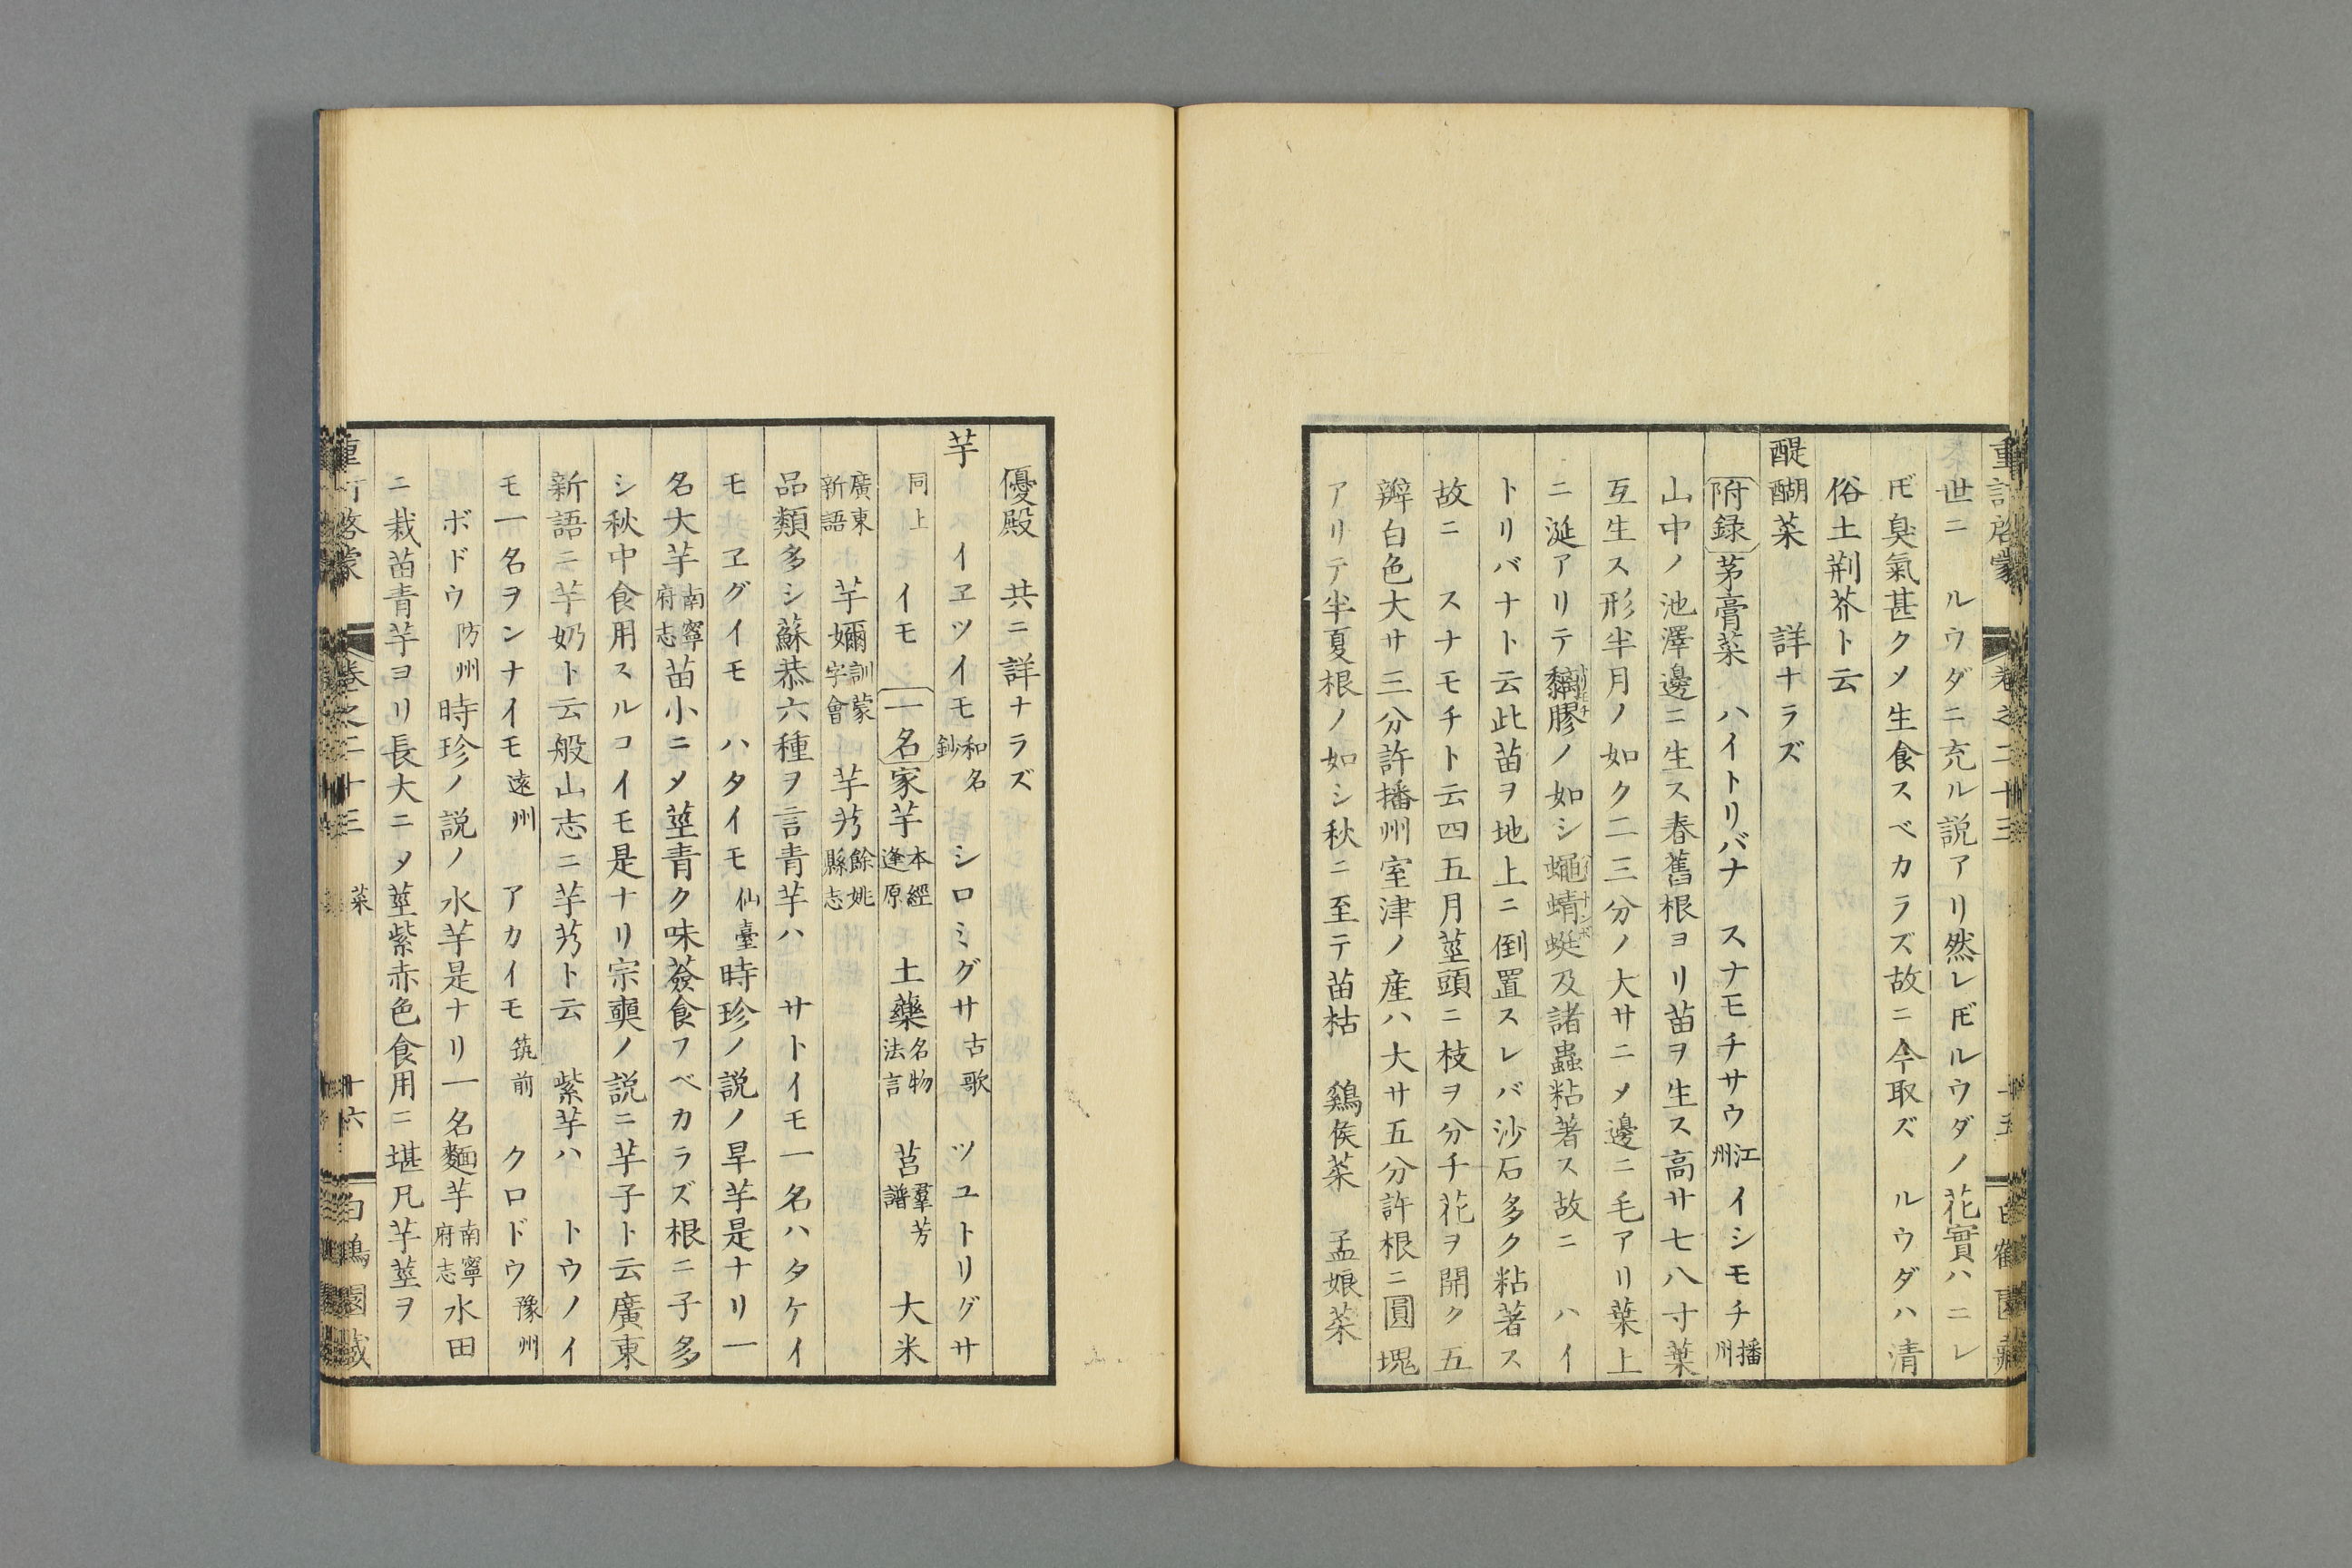 重訂啓蒙 卷之二十三 十五 白鶴園藏
世ニ ルウダニ充ル説アリ然レ𪜈ルウダノ花實ハニレ
𪜈臭氣甚クメ生食スベカラズ故ニ今取ズ ルウダハ清
俗土荊芥ト云
醍醐菜 詳ナラズ
附録 茅膏菜 ハイトリバナ スナモチサウ江州 イシモチ播州
山中ノ池澤邊ニ生ス春舊根ヨリ苗ヲ生ス高サ七八寸葉
互生ス形半月ノ如ク二三分ノ大サニメ邊ニ毛アリ葉上
ニ涎アリテ黐膠ノ如シ蠅蜻蜓及諸蟲粘著ス故ニ ハイ
トリバナト云此苗ヲ地上ニ倒置スレバ沙石多ク粘著ス
故ニ スナモチト云四五月莖頭ニ枝ヲ分チ花ヲ開ク五
辨白色大サ三分許播州室津ノ産ハ大サ五分許根ニ圓塊
アリテ半夏根ノ如シ秋ニ至テ苗枯 鷄侯菜 孟娘菜
優殿 共ニ詳ナラズ
芋 イヱツイモ和名鈔 シロミグサ古歌 ツユトリグサ
同上 イモ 一名 家芋本經逢原 土藥名物法言 莒羣芳譜 大米
廣東新語 芋嬭訓蒙字會 芋艿餘姚縣志
品類多シ蘇恭六種ヲ言青芋ハ サトイモ一名ハタケイ
モ ヱグイモ ハタイモ仙臺 時珍ノ説ノ旱芋是ナリ一
名大芋南寧府志 苗小ニメ莖青ク味薟食フベカラズ根ニ子多
シ秋中食用スルコイモ是ナリ宗奭ノ説ニ芋子ト云廣東
新語ニ芋奶ト云般山志ニ芋艿ト云 紫芋ハ トウノイ
モ一名ヲンナイモ遠州 アカイモ筑前 クロドウ豫州
ボドウ防州 時珍ノ説ノ水芋是ナリ一名麵芋南寧府志 水田
ニ栽苗青芋ヨリ長大ニメ莖紫赤色食用ニ堪凡芋莖ヲ
重訂啓蒙 卷之二十三 菜 十六 白鶴園藏